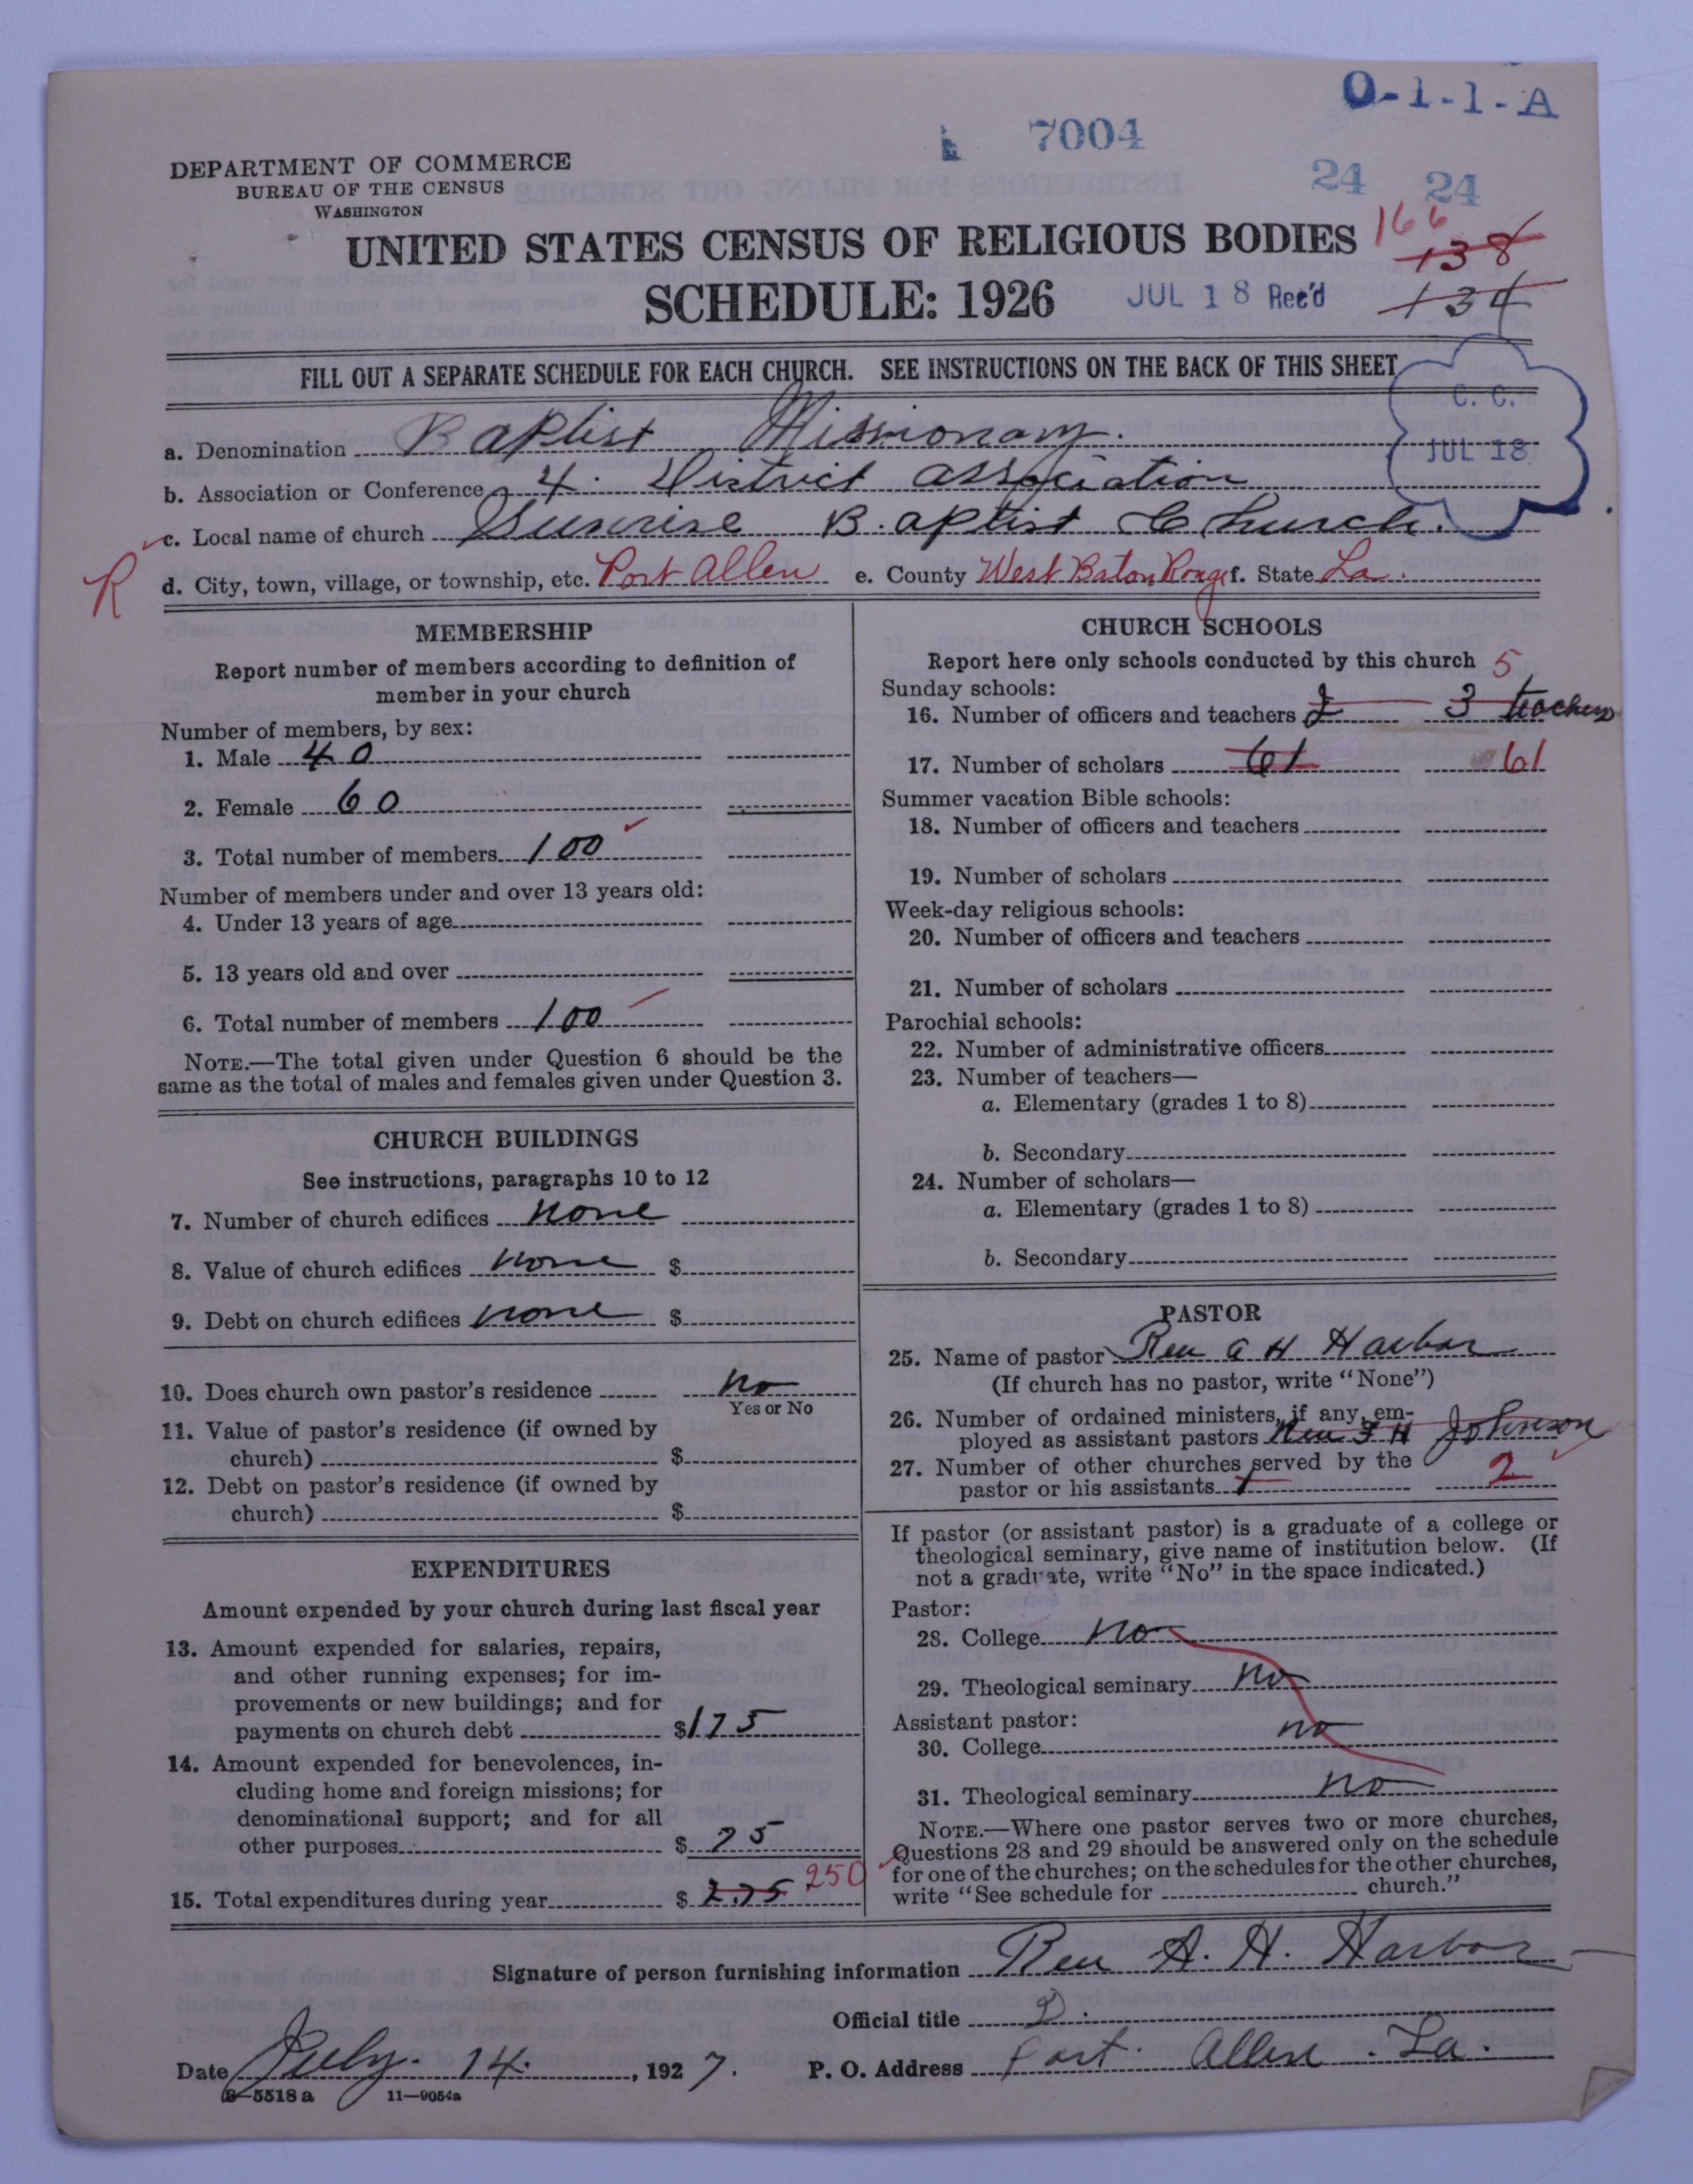 O-1-1-A
7004
24 24
DEPARTMENT OF COMMERCE
BUREAU OF THE CENSUS
WASHINGTON
166
138
134
UNITED STATES CENSUS OF RELIGIOUS BODIES
SCHEDULE: 1926 JUL 18 Rec'd
FILL OUT A SEPARATE SCHEDULE FOR EACH CHURCH. SEE INSTRUCTIONS ON THE BACK OF THIS SHEET
C. C.
JUL 18
a. Denomination Baptist Missionary.
b. Association or Conference 4. District association
c. Local name of church Sunrise Baptist Church.
R
d. City, town, village, or township, etc. Port Allen e. County West Baton Rouge f. State La.
MEMBERSHIP
Report number of members according to definition of
member in your church
Number of members, by sex:
1. Male 40
2. Female 60
3. Total number of members 100
Number of members under and over 13 years old:
4. Under 13 years of age
5. 13 years old and over
6. Total number of members 100
NOTE.—The total given under Question 6 should be the
same as the total of males and females given under Question 3.
CHURCH BUILDINGS
See instructions, paragraphs 10 to 12
7. Number of church edifices none
8. Value of church edifices none $
9. Debt on church edifices none $
10. Does church own pastor's residence no
Yes or No
11. Value of pastor's residence (if owned by
church) $
12. Debt on pastor's residence (if owned by
church) $
EXPENDITURES
Amount expended by your church during last fiscal year
13. Amount expended for salaries, repairs,
and other running expenses; for im-
provements or new buildings; and for
payments on church debt $175
14. Amount expended for benevolences, in-
cluding home and foreign missions; for
denominational support; and for all
other purposes $ 75
250
15. Total expenditures during year $ 275
CHURCH SCHOOLS
Report here only schools conducted by this church 5
Sunday schools:
16. Number of officers and teachers 2 3 teachers
17. Number of scholars 61 61
Summer vacation Bible schools:
18. Number of officers and teachers
19. Number of scholars
Week-day religious schools:
20. Number of officers and teachers
21. Number of scholars
Parochial schools:
22. Number of administrative officers
23. Number of teachers—
a. Elementary (grades 1 to 8)
b. Secondary
24. Number of scholars—
a. Elementary (grades 1 to 8)
b. Secondary
PASTOR
25. Name of pastor Rev A H Harbor
(If church has no pastor, write "None")
26. Number of ordained ministers, if any, em-
ployed as assistant pastors Rev F H Johnson
27. Number of other churches served by the
pastor or his assistants 1 2
If pastor (or assistant pastor) is a graduate of a college or
theological seminary, give name of institution below. (If
not a graduate, write "No" in the space indicated.)
Pastor:
28. College no
29. Theological seminary no
Assistant pastor:
30. College no
31. Theological seminary no
NOTE.—Where one pastor serves two or more churches,
Questions 28 and 29 should be answered only on the schedule
for one of the churches; on the schedules for the other churches,
write "See schedule for church."
Signature of person furnishing information Rev A. H. Harbor
Official title
Date July. 14. , 1927. P. O. Address Port. Allen. La.
8—5518 a 11—9054a